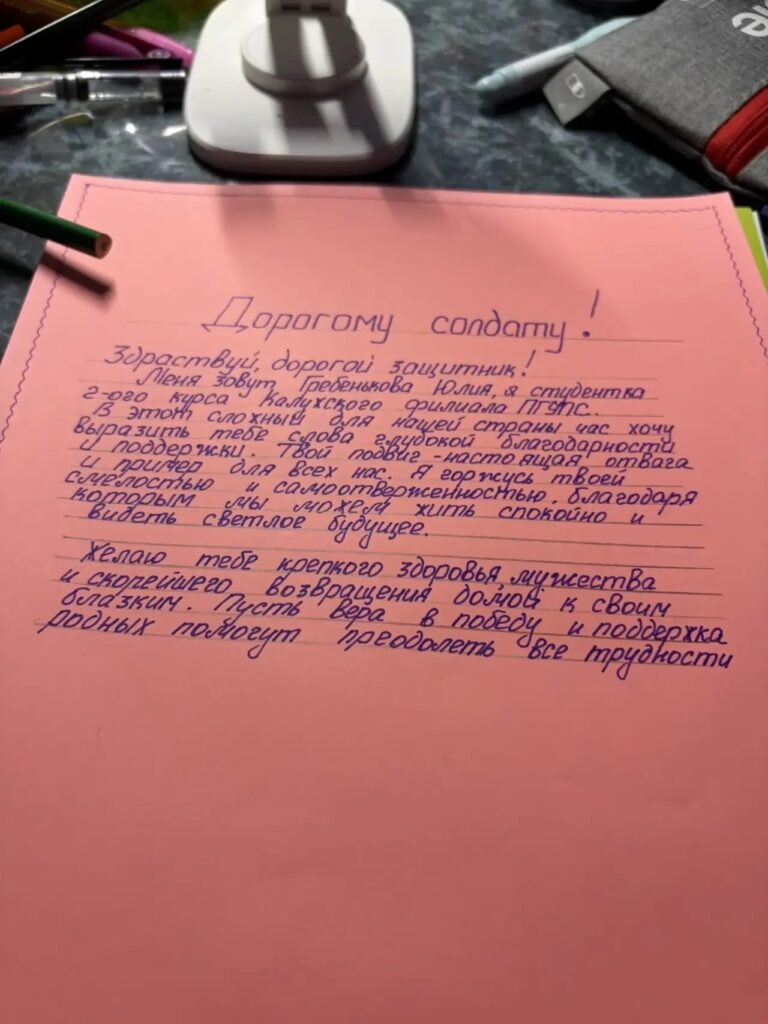 Дорогому солдату!
Здраствуй, дорогой защитник!
Меня зовут Гребенькова Юлия, я студентка
2-ого курса Калужского филиала ПГУПС.
В этот сложный для нашей страны час хочу
выразить тебе слова глубокой благодарности
и поддержки. Твой подвиг - настоящая отвага
и пример для всех нас. Я горжусь твоей
смелостью и самоотверженностью, благодаря
которым мы можем жить спокойно и
видеть светлое будущее.
Желаю тебе крепкого здоровья, мужества
и скорейшего возвращения домой к своим
близким. Пусть вера в победу и поддержка
родных помогут преодолеть все трудности